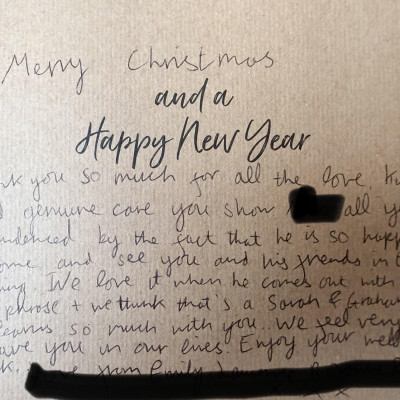 Merry Christmas
and a
Happy New Year
nk you so much for all the love
genuine care you show all y
idenced by the fact that he is so happ
ome and see you and his friends in t
ing. We love it when he comes out with
phrase + we think that's a Sarah & Graham
earns so much with you. We feel very
ave you in our lives. Enjoy your well
k. from Emily